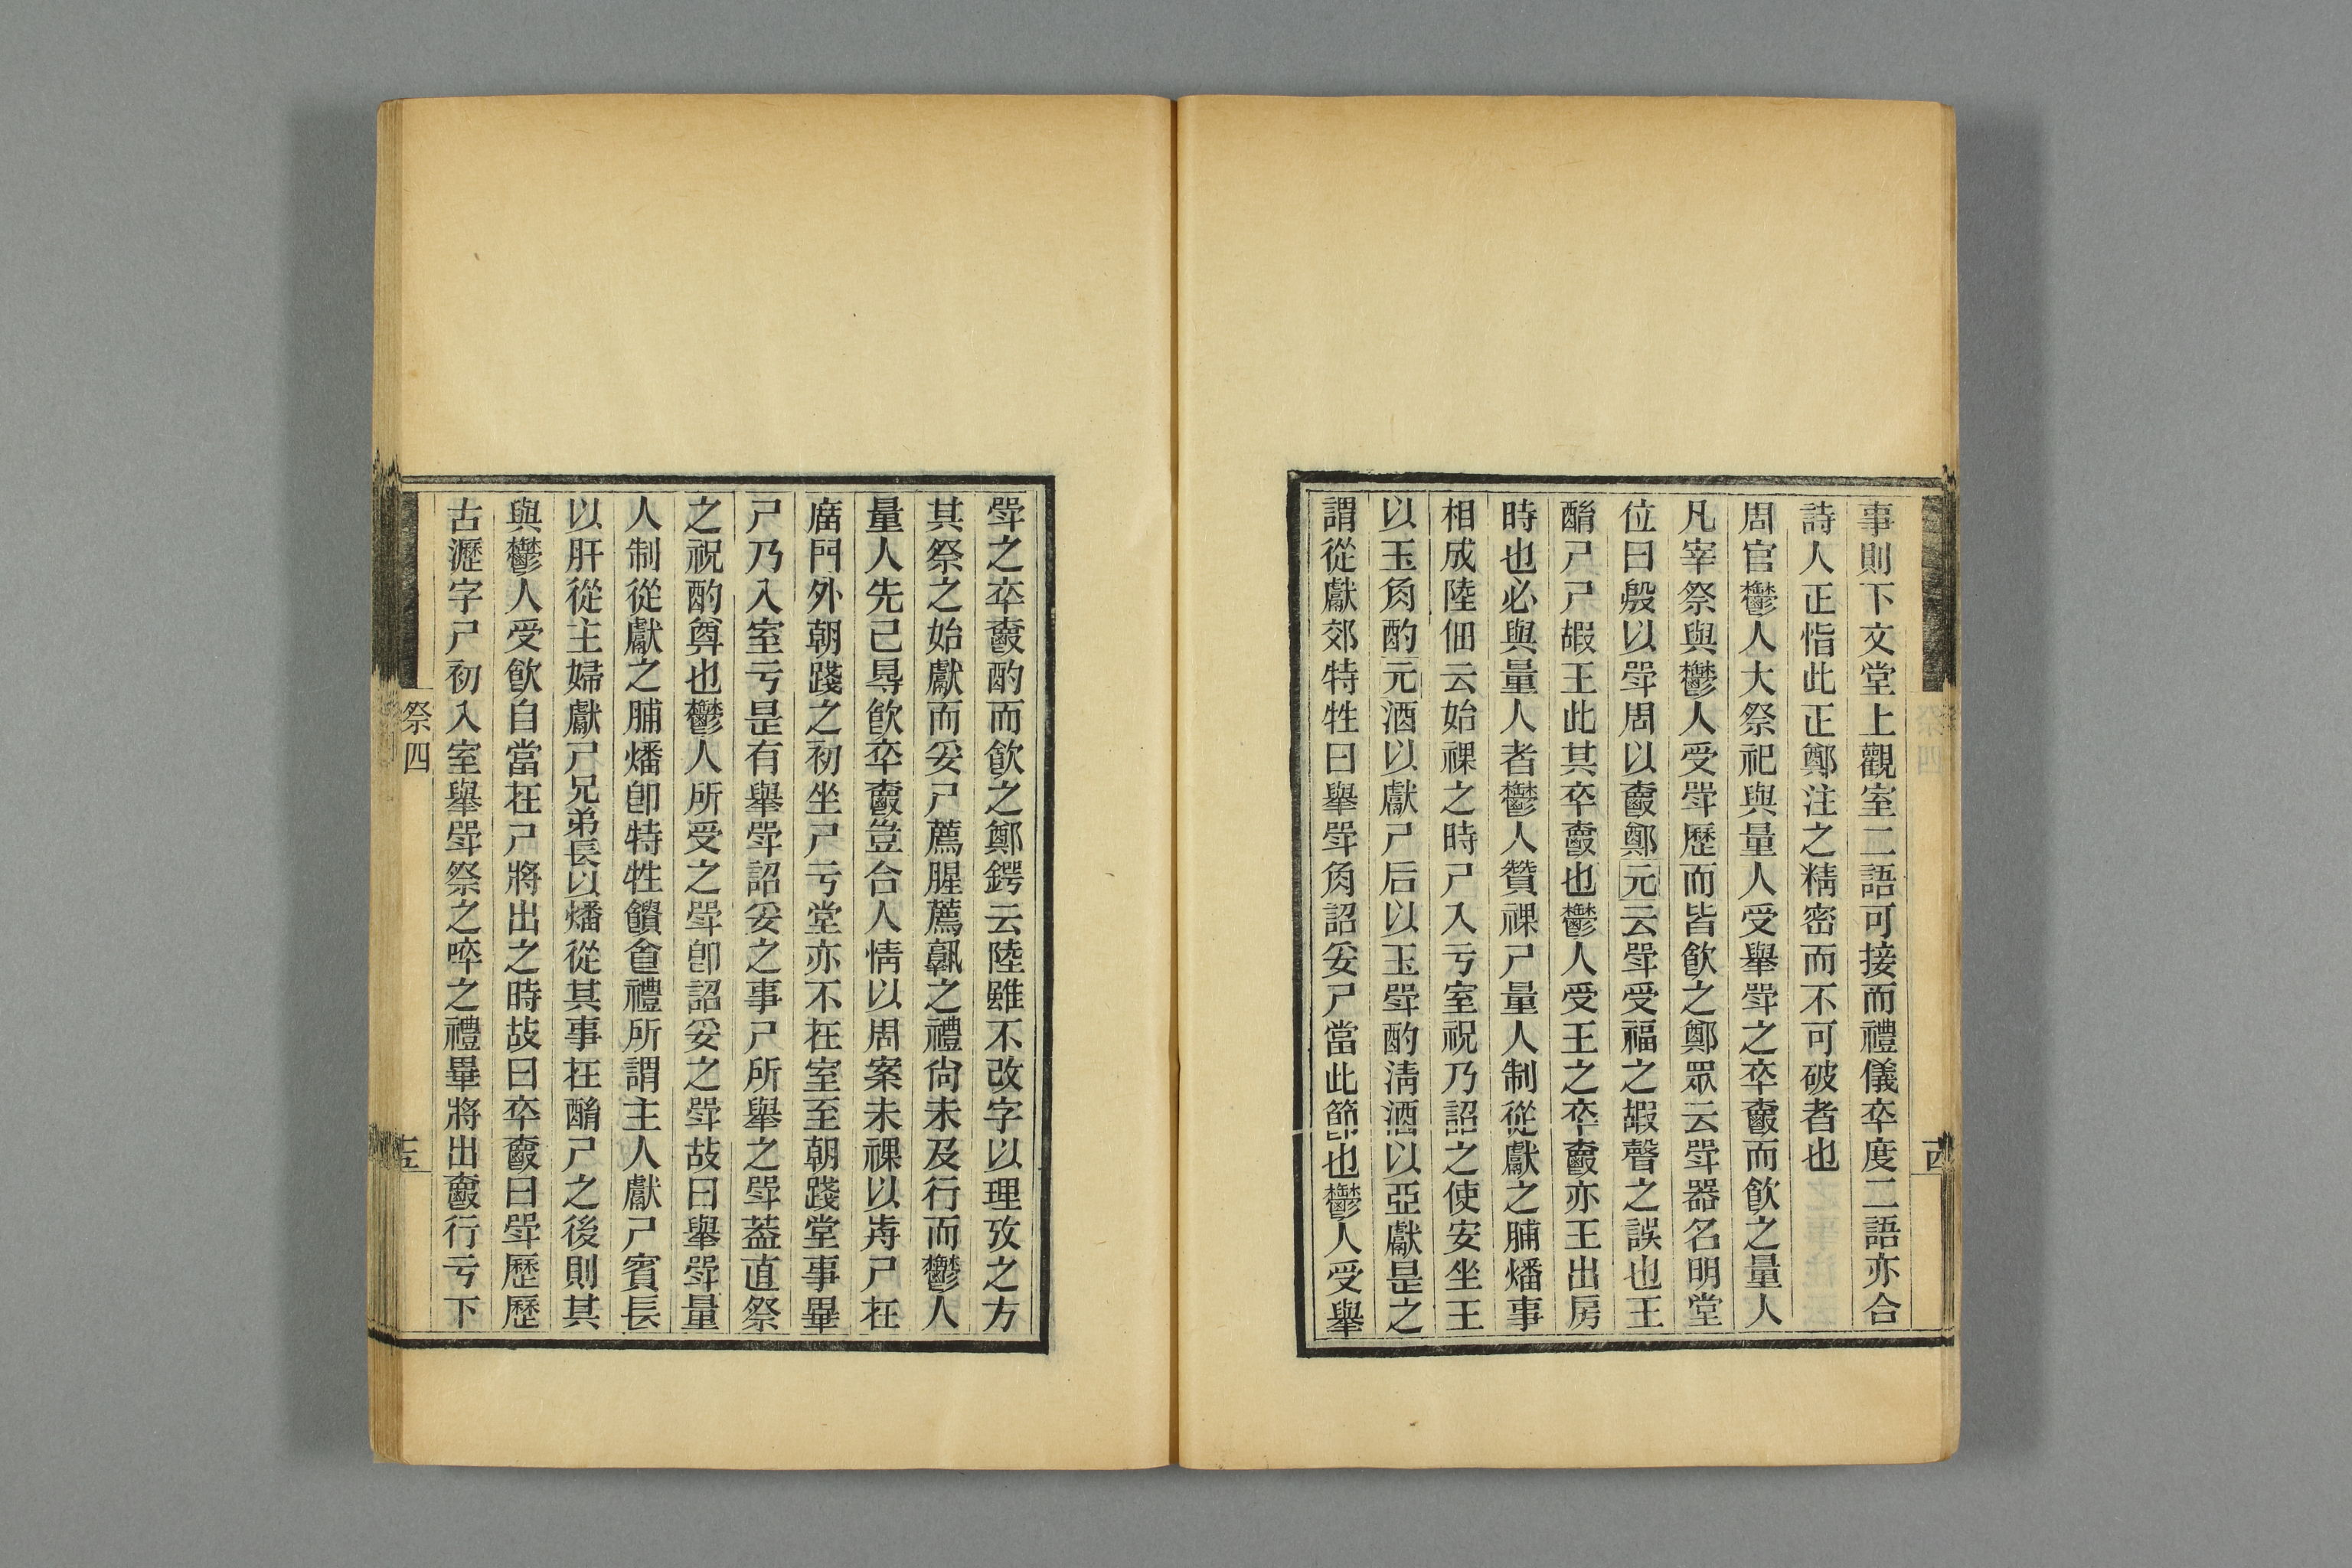 事則下文堂上觀室二語可接而禮儀卒度二語亦合
詩人正恉此正鄭注之精密而不可破者也
周官鬱人大祭祀與量人受舉斝之卒𪠍而飮之量人
凡宰祭與鬱人受斝歷而皆飮之鄭眾云斝器名明堂
位曰殷以斝周以𪠍鄭元云斝受福之嘏聲之誤也王
酳尸尸嘏王此其卒𪠍也鬱人受王之卒𪠍亦王出房
時也必與量人者鬱人贊祼尸量人制從獻之脯燔事
相成陸佃云始祼之時尸入亏室祝乃詔之使安坐王
以玉角酌元酒以獻尸后以玉斝酌淸酒以亞獻是之
謂從獻郊特牲曰舉斝角詔妥尸當此節也鬱人受舉
斝之卒𪠍酌而飮之鄭鍔云陸雖不改字以理攷之方
其祭之始獻而妥尸薦腥薦孰之禮尙未及行而鬱人
量人先已䙷飮卒𪠍豈合人情以周案未祼以歬尸在
庿門外朝踐之初坐尸亏堂亦不在室至朝踐堂事畢
尸乃入室亏是有舉斝詔妥之事尸所舉之斝葢直祭
之祝酌奠也鬱人所受之斝卽詔妥之斝故曰舉斝量
人制從獻之脯燔卽特牲饋食禮所謂主人獻尸賓長
以肝從主婦獻尸兄弟長以燔從其事在酳尸之後則其
與鬱人受飮自當在尸將出之時故曰卒𪠍曰斝歷歷
古瀝字尸初入室舉斝祭之啐之禮畢將出𪠍行亏下
祭四